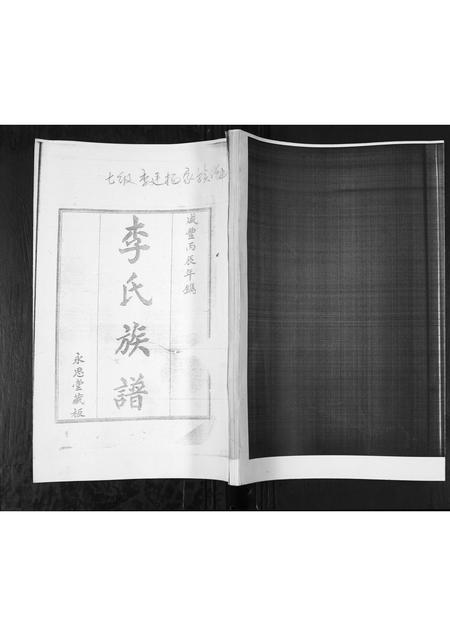 七级李廷杞家族谱
咸豐丙辰年鐫
李氏族譜
永思堂藏板